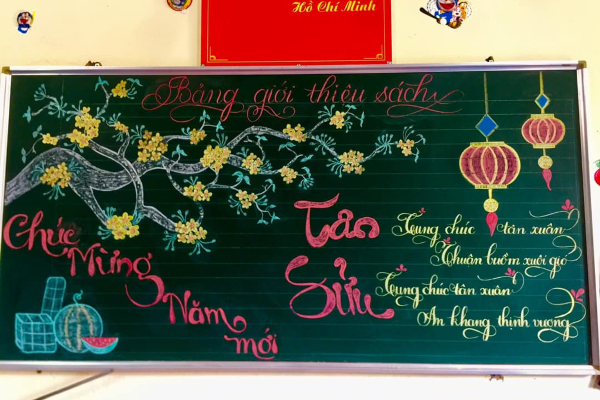 Hồ Chí Minh
Bảng giới thiệu sách
Chúc
Mừng
Năm
mới
Tân
Sửu
Cung chúc tân xuân
Thuận buồm xuôi gió
Cung chúc tân xuân
An khang thịnh vượng